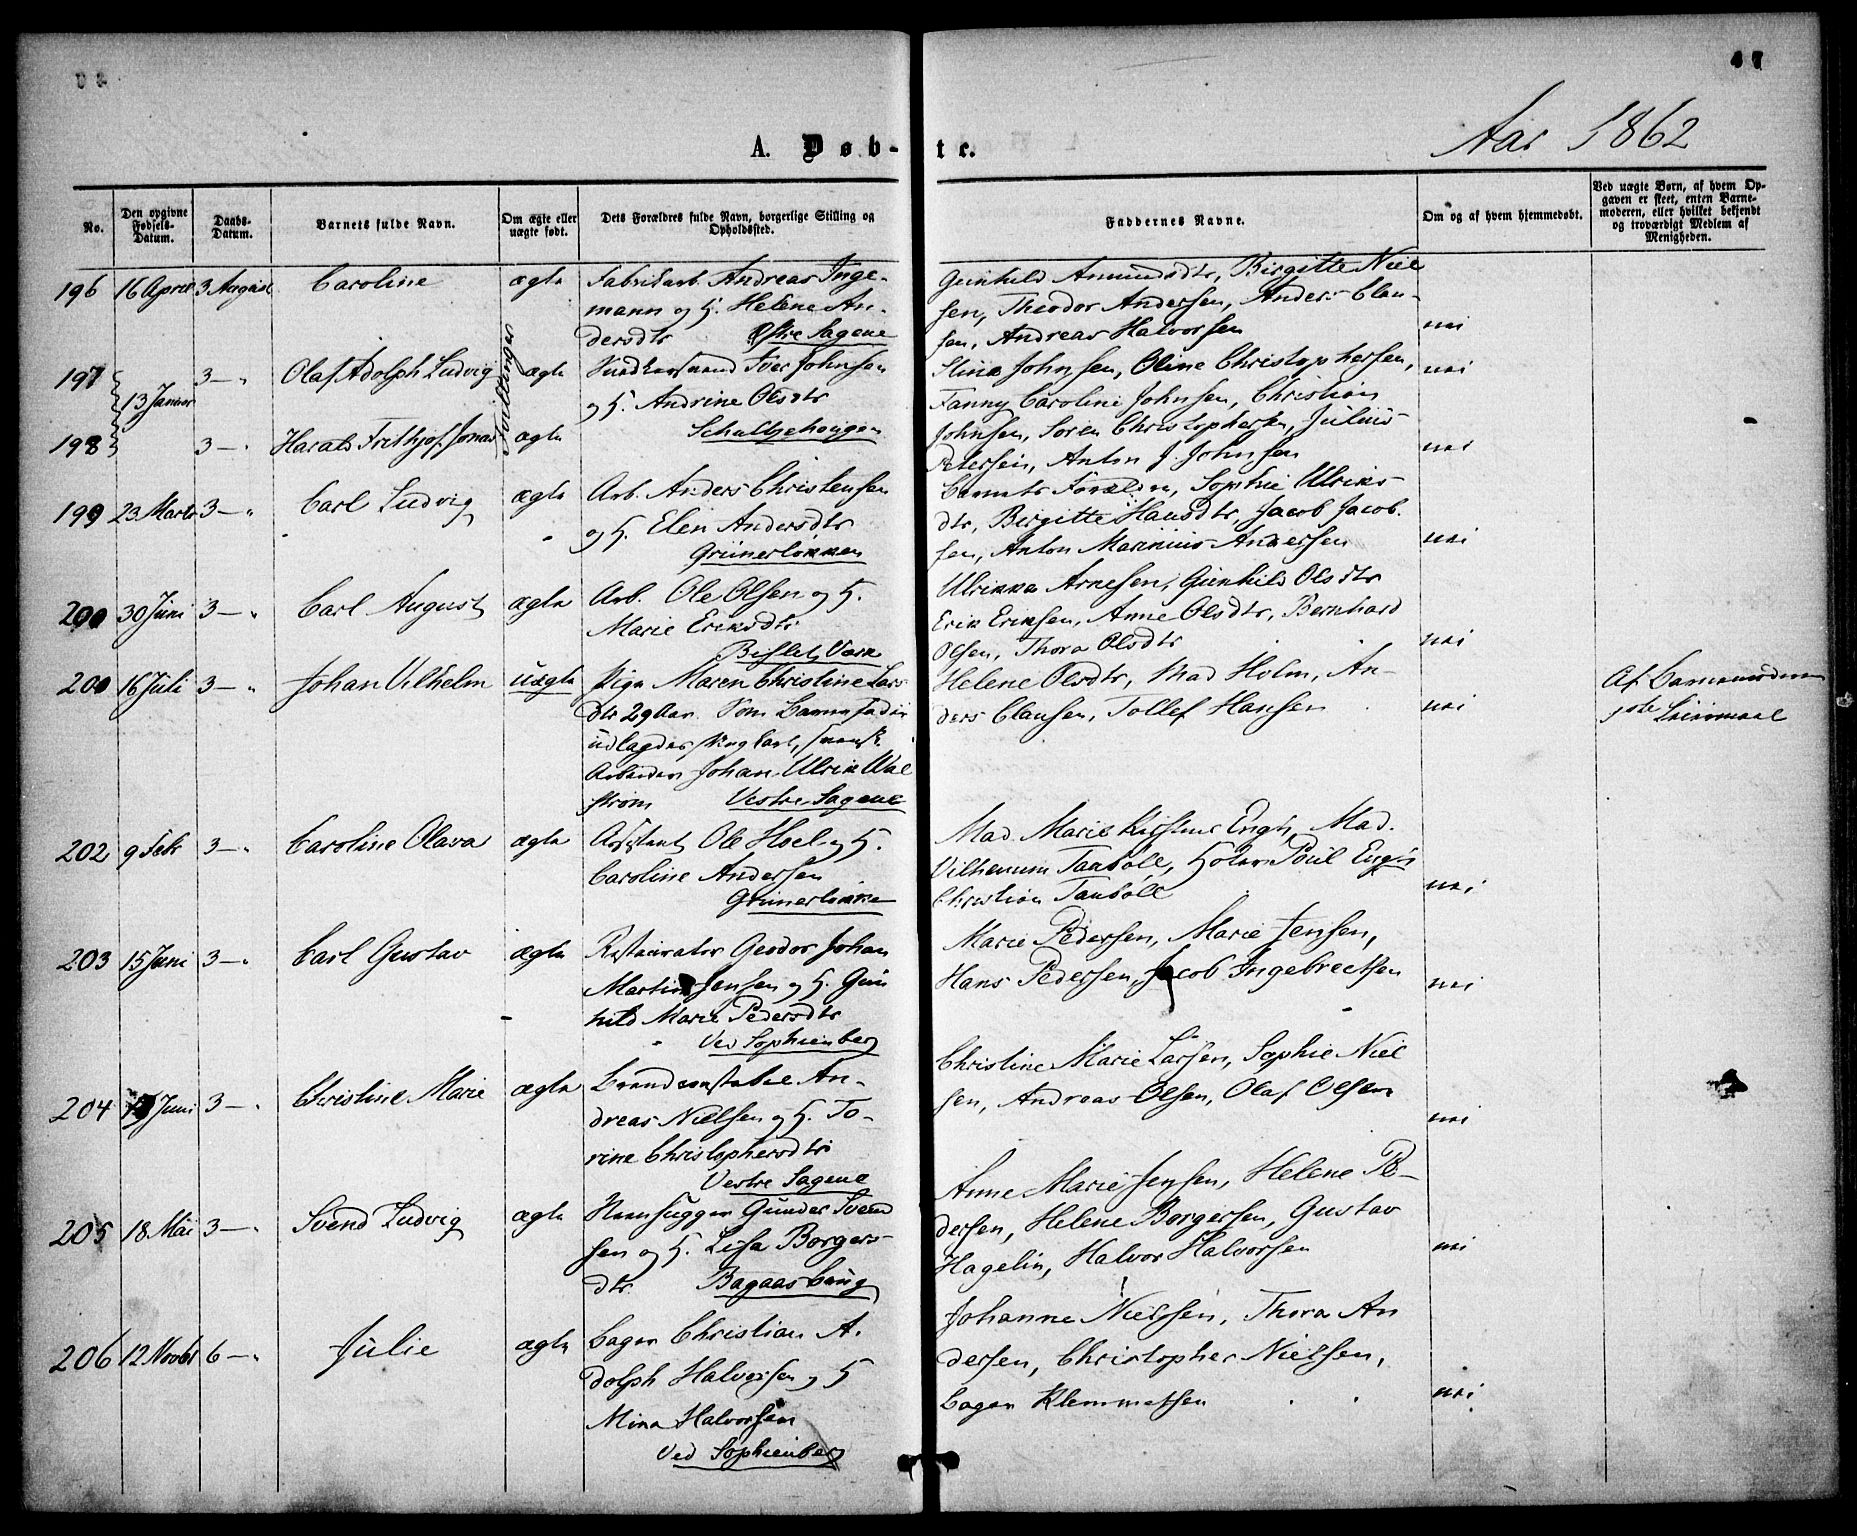 47
Aar 1862
A. Døb-te.
No.
Den opgivne Fødsels-Datum.
Daabs-Datum.
Barnets fulde Navn.
Om ægte eller uægte født.
Dets Forældres fulde Navn, borgerlige Stilling og Opholdssted.
Faddernes Navne.
Om og af hvem hjemmedøbt.
Ved uægte Børn, af hvem Opgaven er skeet, enten Barnemoderen, eller hvilket bekjendt og troværdigt Medlem af Menigheden.
196 16 April 3 August Caroline ægte
Fabrikarb. Andreas Inge-
mann og H. Helene An-
dersdtr Østre Sagene
Gunhild Amundsdtr, Birgitte Niel
sen, Theodor Andersen, Anders Clau-
sen, Andreas Halvorsen nei
197 13 Januar 3 — " Olaf Adolph Ludvig ægte
Tvillinger
Iver Johnsen
og H. Andrine Olsdtr
Schultzehaugen
Stine Johnsen, Oline Christophersen, nei
Fanny Caroline Johnsen, Christian
198 3 — " Harald Frithjof Jonas ægte
Johnsen, Soren Christophersen, Julius
Petersen, Anton J. Johnsen nei
199 23 Marts 3 — " Carl Ludvig ægte
Arb. Anders Christensen
og H. Elen Andersdtr
Grünerløkken
Barnets Forældre, Sophie Ulriks-
dtr, Birgitte Hansdtr, Jacob Jacob-
sen, Anton Marinius Andersen nei
200 30 Juni 3 — " Carl August ægte
Arb. Ole Olsen og H.
Marie Eriksdtr
Bislet Værk
Ulrikka Arnesen, Gunhild Olsdtr
Erik Eriksen, Anne Olsdtr, Bernhard
Olsen, Thora Olsdtr nei
200 16 Juli 3 — " Johan Vilhelm uægte
Pige Maren Christine Lars
dtr 29 Aar. Som Barnefader
udlagdes Ungkarl, svensk
Arbeider Johan Ulrik Wal
strøm Vestre Sagene
Helene Olsdtr, Mad Holm, An-
ders Clausen, Tollef Hansen nei
Af Barnemoderen
1ste Leiermaal
202 9 Febr 3 — " Caroline Olava ægte
Assistant Ole Hoel og H.
Caroline Andersen
Grünerløkke
Mad. Marie Kirstine Engh, Mad.
Taubøll, Poul Engh
Christian Taubøll nei
203 15 Juni 3 — " Carl Gustav ægte
Restaurator Geodor Johan
Martin Jensen og H. Gun
hild Marie Pedersdtr
Ved Sophienberg
Marie Pedersen, Marie Jensen,
Hans Pedersen, Jacob Ingebrectsen nei
204 Juni 3 — " Christine Marie ægte
Brandconstabel An-
dreas Nielsen og H. To-
rine Christophersdtr
Vestre Sagene
Christine Marie Larsen, Sophie Niel
sen, Andreas Olsen, Olaf Olsen nei
205 18 Mai 3 — " Svend Ludvig ægte
Steenhugger Gunder Svend
sen og H. Lisa Borgers-
dtr. Bagaasbaug
Anne Marie Jensen, Helene Pe-
dersen, Helene Borgersen, Gustav
Hagelin, Halvor Halvorsen nei
206 12 Novbr 6 — " Julie ægte
Bager Christian A-
dolph Halvorsen og H
Mina Halvorsen
Ved Sophienberg
Johanne Nielsen, Thora An
dersen, Christopher Nielsen,
Bager Klemmetsen nei